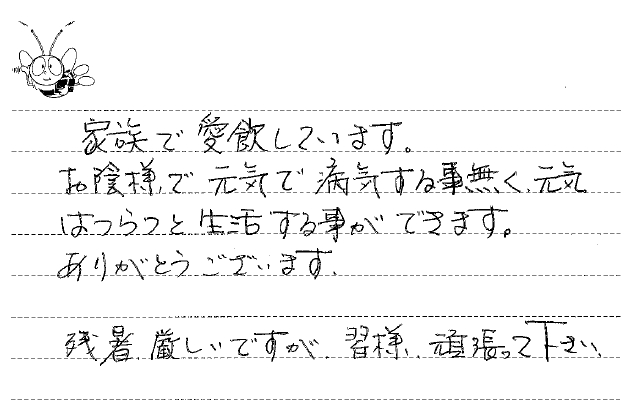 家族で愛飲しています。
お陰様で元気で病気する事無く、元気
はつらつと生活する事ができます。
ありがとうございます。
残暑、厳しいですが、習様、頑張って下さい、